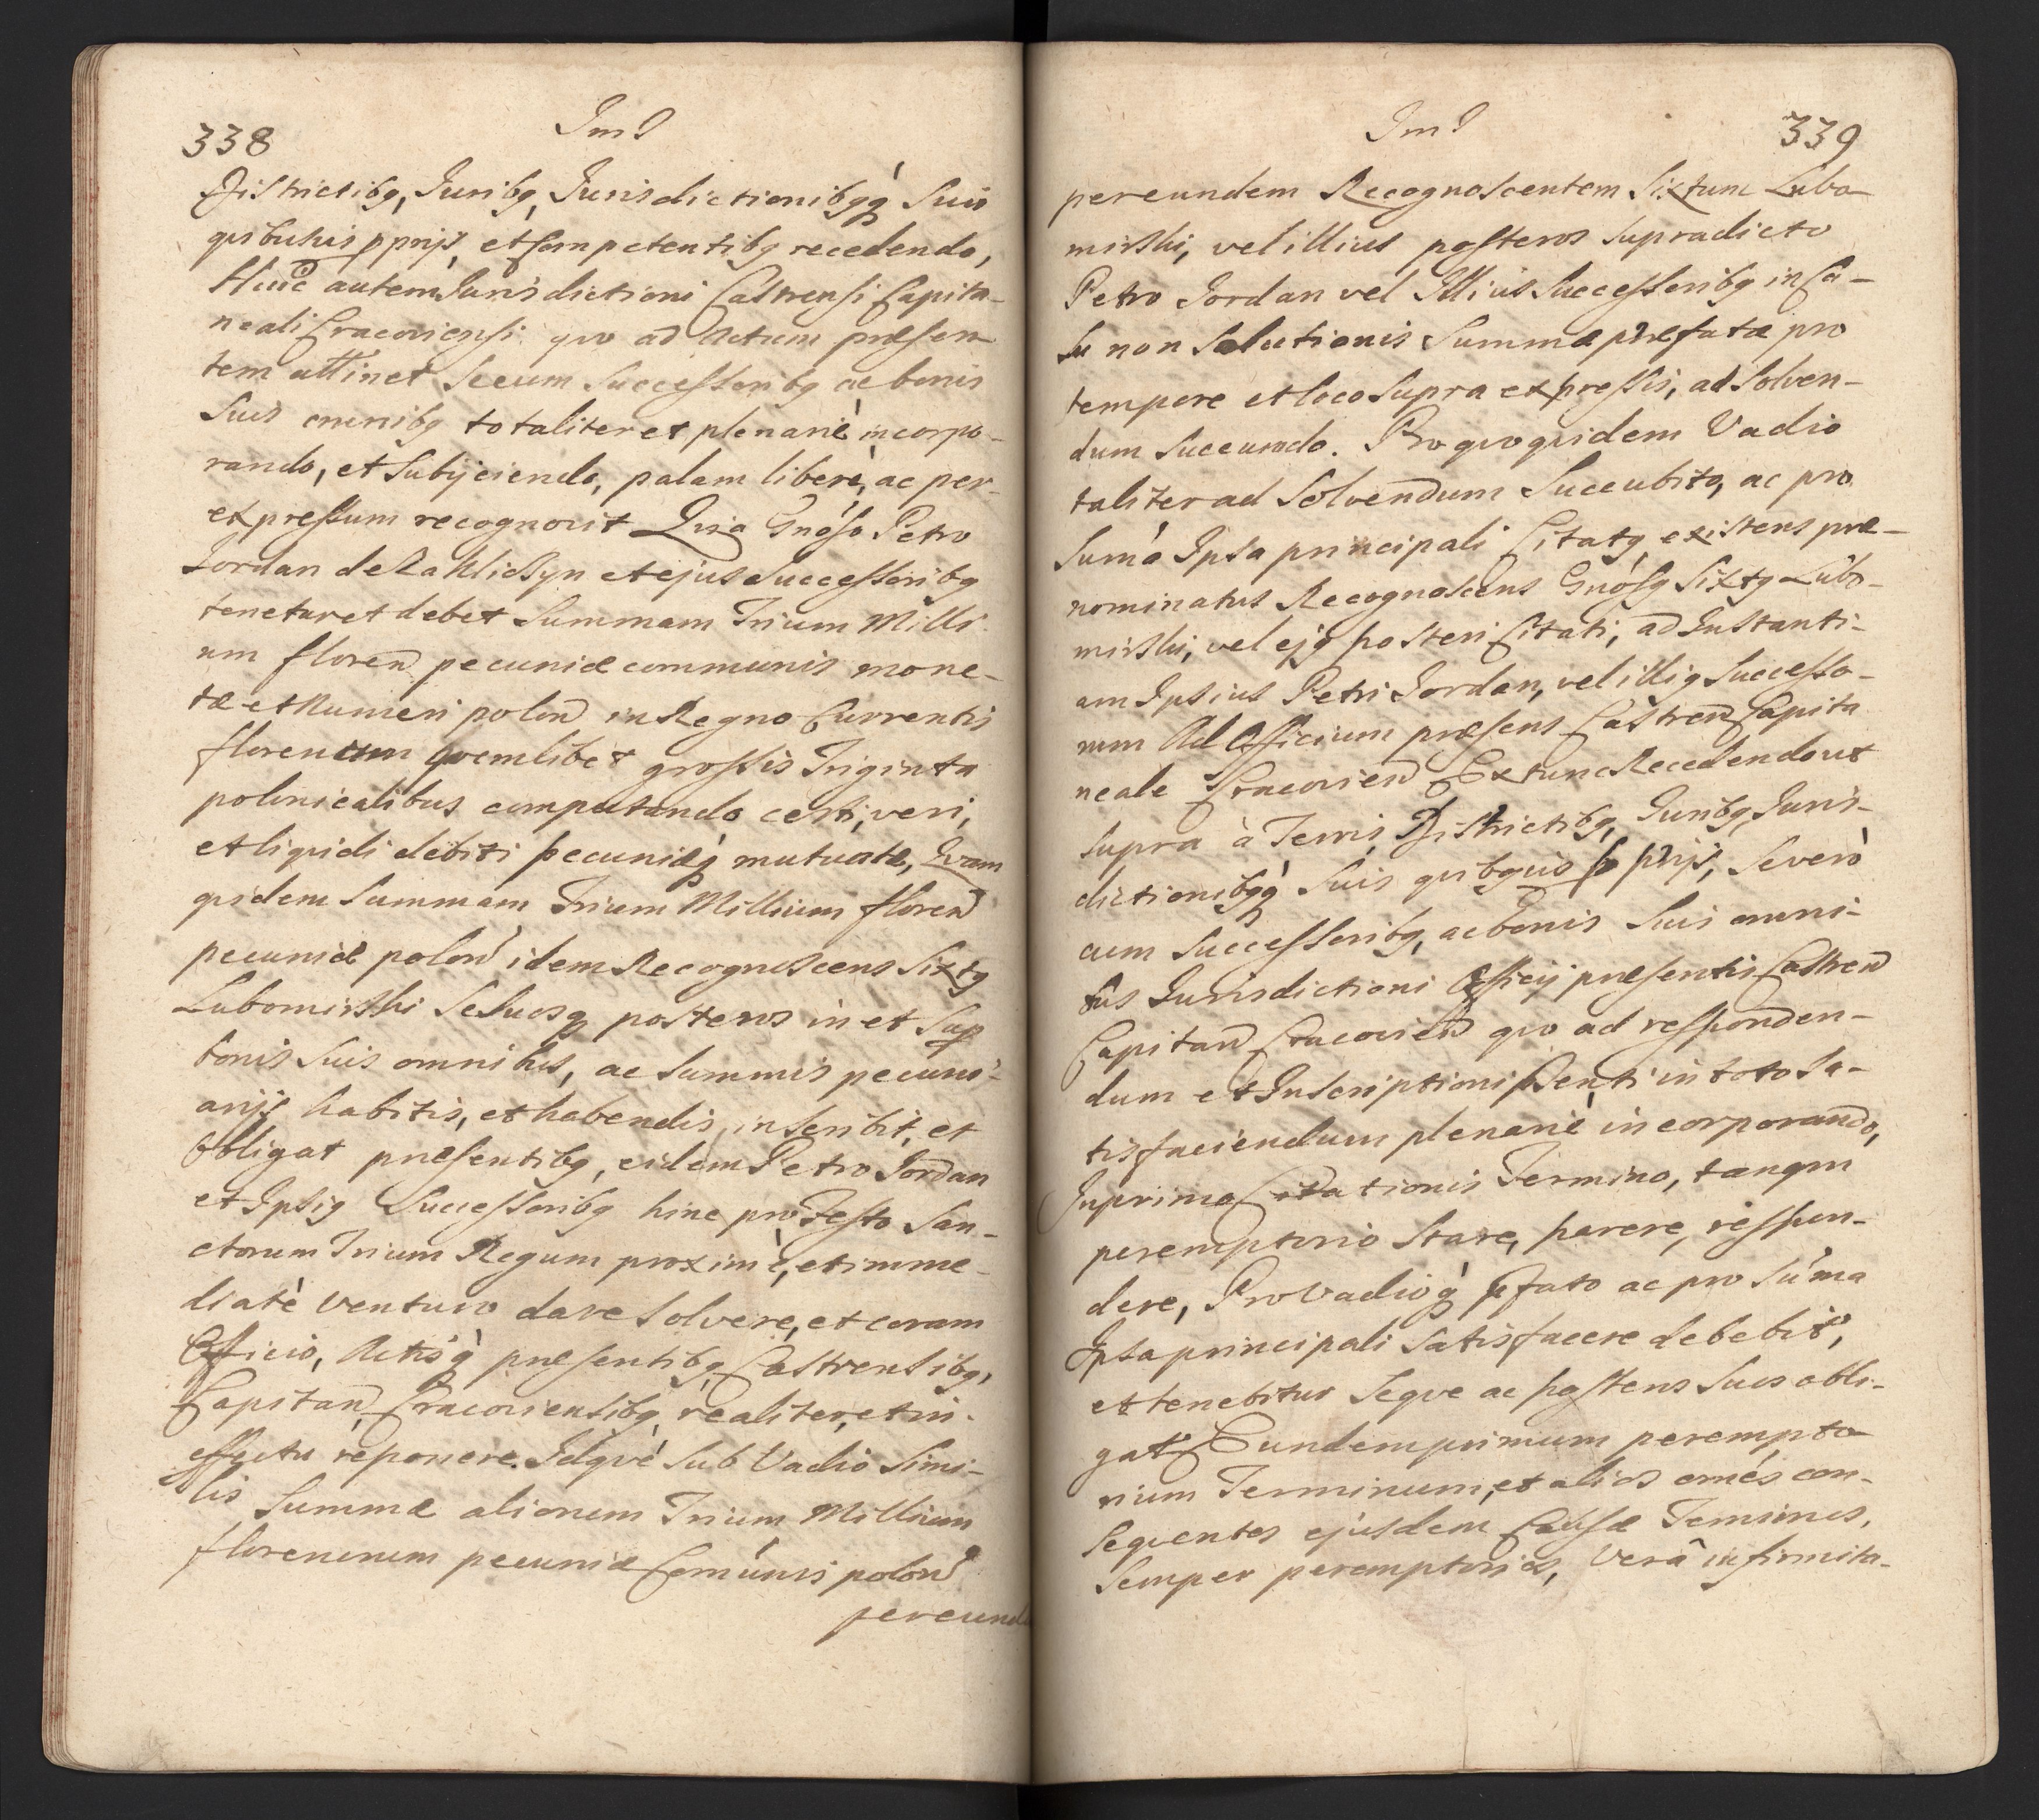 338
ImJ
Districtibg, Juribg, Jurisdictionibgq Suis
quibusuis pprijs, et Competentibg recedendo,
Huic autem Jurisdictioni Castrensi Capita-
neali Cracoviensi quo ad Actum præsen
tem attinet Secum Successoribg ac bonis
Suis omnibg totaliter et plenariè incorpo-
rando, et Subijciendo, palam liberè, ac per-
expressum recognovit Quia Gnoso Petro
Jordan de Zakliczyn et ejus Successoribg
tenetur et debet Summam Trium Milli-
um floren pecuniæ communis mone-
tæ et Numeri polon in Regno Currentis
florenum quemlibet grossis Triginta
polonicalibus computando certi, veri,
et liquidi debiti pecuniæq mutuatæ, Quam
quidem Summam Trium Millium floren
pecuniæ polon idem Recognoscens Sixtg
Lubomirski Se Suosq posteros in et Sup
bonis Suis omnibus, ac Summis pecuni-
arijs habitis, et habendis, inscribit, et
Obligat præsentibg, eidem Petro Jordan
et Ipsig Successoribg hinc pro Festo San-
ctorum Trium Regum proximè, et imme-
diatè venturo dare Solvere, et coram
Officio, Actisq præsentibg Castrensibg,
Capitan Cracoviensibg realiter, et in-
effectu reponere. Idqvè Sub Vadio Simi-
lis Summæ aliorum Trium Millium
florenorum pecuniæ Comunis polon
pereund
ImJ
339
pereundem Recognoscentem Sixtum Lubo-
mirski, vel illius posteros supradicto
Petro Jordan vel Illius Successoribg in Ca-
su non Solutionis Summæ præfatæ pro
tempore et loco Supra expressis, ad Solven-
dum Succumdo. Pro quo quidem Vadio
taliter ad Solvendum Succubito, ac pro
Sumá Ipsa principali Citatg existens præ-
nominatus Recognoscens Gnosg Sixtg Lubo-
mirski, vel ejg posteri Citati, ad Instanti-
am Ipsius Petri Jordan, vel illig Successo-
rum Ad Officium præsens Castren Capita
neale Cracovien Ex tunc Recedendo ut
supra à Terris, Districtibg, Juribg, Juris-
dictionibgq Suis quibguis pprijs, Severò
cum Successoribg, ac bonis Suis omni-
bus Jurisdictioni Officij præsentis Castren
Capitan Cracovien quo ad responden-
dum et Inscriptioni pnti in toto Sa-
tisfaciendum plenariè incorporando,
In primo Citationis Termino, tanqm
peremptorio Stare, parere, respon-
dere, Pro Vadioq pfato ac pro Súma
Ipsa principali Satisfacere debebit,
et tenebitur Seqve ac posteros Suos obli-
gat Eundem primum perempto-
rium Terminum, et alios omés con-
seqventes ejusdem Causæ Terminos,
Semper peremptorios, Verâ infirmita-